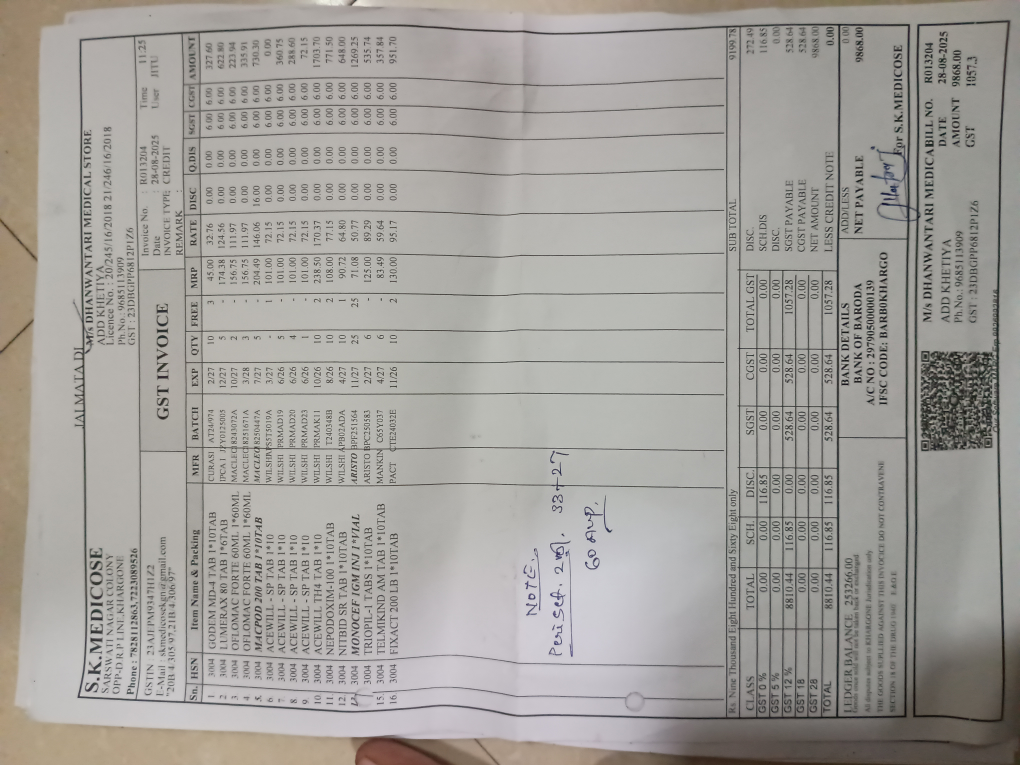 JAI MATA DI
S.K.MEDICOSE
SARSWATI NAGAR COLONY
OPP-D.R.P LINE,KHARGONE
Phone : 7828112863,7223089526
GSTIN : 23AJEPM9347H1Z2
E-Mail : skmedicosekgn@gmail.com
GST INVOICE
M/s DHANWANTARI MEDICAL STORE
ADD KHETIYA
Licence No. : 20/245/16/2018 21/246/16/2018
Ph.No.: 9685113909
GST : 23DBGPP6812P1Z6
Invoice No. : R013204 Time 11:25
Date : 28-08-2025 User JITU
INVOICE TYPE: CREDIT
REMARK :
Sn. HSN Item Name & Packing MFR BATCH EXP QTY FREE MRP RATE DISC Q.DIS SGST CGST AMOUNT
1. 3004 GODEM MD-4 TAB 1*10TAB CURASI AT24/974 2/27 10 3 45.00 32.76 0.00 0.00 6.00 6.00 327.60
2 3004 LUMERAX 80 TAB 1*6TAB IPCA I JZY0125005 12/27 5 - 174.38 124.56 0.00 0.00 6.00 6.00 622.80
3. 3004 OFLOMAC FORTE 60ML 1*60ML MACLEO 8243072A 10/27 2 - 156.75 111.97 0.00 0.00 6.00 6.00 223.94
4. 3004 OFLOMAC FORTE 60ML 1*60ML MACLEO 8251671A 3/28 3 - 156.75 111.97 0.00 0.00 6.00 6.00 335.91
5. 3004 MACPOD 200 TAB 1*10TAB MACLEO 8250447A 7/27 5 - 204.49 146.06 16.00 0.00 6.00 6.00 730.30
6. 3004 ACEWILL - SP TAB 1*10 WILSHI 3/27 - 1 101.00 72.15 0.00 0.00 6.00 6.00 0.00
7. 3004 ACEWILL - SP TAB 1*10 WILSHI PRMAD19 6/26 5 - 101.00 72.15 0.00 0.00 6.00 6.00 360.75
8. 3004 ACEWILL - SP TAB 1*10 WILSHI PRMAD20 6/26 4 - 101.00 72.15 0.00 0.00 6.00 6.00 288.60
9. 3004 ACEWILL - SP TAB 1*10 WILSHI PRMAD23 6/26 1 - 101.00 72.15 0.00 0.00 6.00 6.00 72.15
10. 3004 ACEWILL TH4 TAB 1*10 WILSHI PRMAK11 10/26 10 2 238.50 170.37 0.00 0.00 6.00 6.00 1703.70
11. 3004 NEPODOXIM-100 1*10TAB WILSHI T240348B 8/26 10 2 108.00 77.15 0.00 0.00 6.00 6.00 771.50
12. 3004 NITBID SR TAB 1*10TAB WILSHI APB02ADA 4/27 10 1 90.72 64.80 0.00 0.00 6.00 6.00 648.00
3004 MONOCEF 1GM INJ 1*VIAL ARISTO BPF251564 11/27 25 25 71.08 50.77 0.00 0.00 6.00 6.00 1269.25
3004 TRIOPIL-1 TABS 1*10TAB ARISTO BPC250583 2/27 6 - 125.00 89.29 0.00 0.00 6.00 6.00 535.74
15. 3004 TELMIKIND AM TAB 1*10TAB MANKIN C65Y037 4/27 6 - 83.49 59.64 0.00 0.00 6.00 6.00 357.84
16. 3004 FIXACT 200 LB 1*10TAB PACT CTE24032E 11/26 10 2 130.00 95.17 0.00 0.00 6.00 6.00 951.70
NOTE:
33+27
60 AMP.
Rs. Nine Thousand Eight Hundred and Sixty Eight only
SUB TOTAL 9199.78
CLASS TOTAL SCH. DISC. SGST CGST TOTAL GST
GST 0 % 0.00 0.00 116.85 0.00 0.00 0.00
GST 5 % 0.00 0.00 0.00 0.00 0.00 0.00
GST 12 % 8810.44 116.85 0.00 528.64 528.64 1057.28
GST 18 0.00 0.00 0.00 0.00 0.00 0.00
GST 28 0.00 0.00 0.00 0.00 0.00 0.00
TOTAL 8810.44 116.85 116.85 528.64 528.64 1057.28
DISC. 272.49
SCH.DIS 116.85
DISC. 0.00
SGST PAYABLE 528.64
CGST PAYABLE 528.64
NET AMOUNT 9868.00
LESS CREDIT NOTE 0.00
ADD/LESS 0.00
NET PAYABLE 9868.00
LEDGER BALANCE 253266.00
Goods once sold will not be taken back or exchanged
All disputes subject to KHARGONE Jurisdiction only
THE GOODS SUPLLIED AGAINST THIS INVOCICE DO NOT CONTRAVENE
SECTION 18 OF THE DRUG 1940 E.&O.E
BANK DETAILS
BANK OF BARODA
A/C NO : 29790500000139
IFSC CODE: BARB0KHARGO
For S.K.MEDICOSE
M/s DHANWANTARI MEDICA
ADD KHETIYA
Ph.No.: 9685113909
GST : 23DBGPP6812P1Z6
BILL NO. R013204
DATE 28-08-2025
AMOUNT 9868.00
GST 1057.3